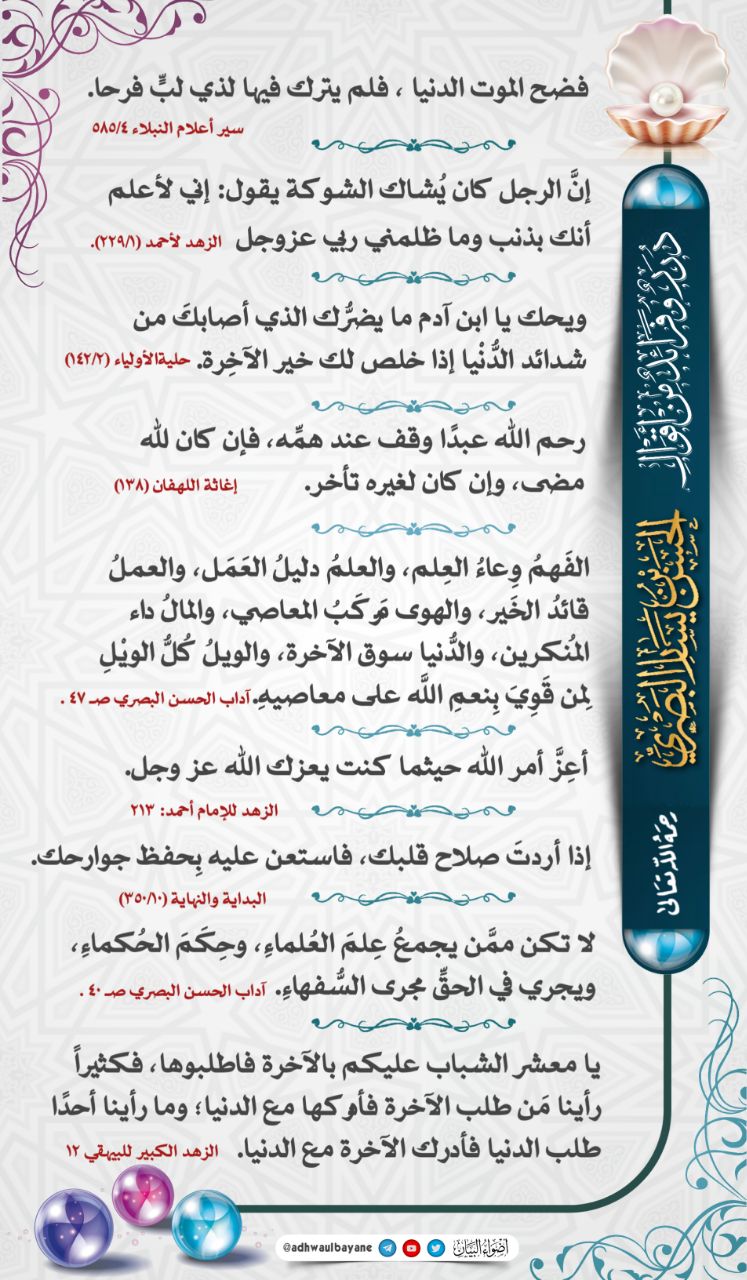 درر وفرائد من أقوال
الحسن بن يسار البصري
رحمه الله تعالى
فضح الموت الدنيا ، فلم يترك فيها لذي لبٍّ فرحا.
سير أعلام النبلاء ٥٨٥/٤
إنَّ الرجل كان يُشاك الشوكة يقول: إني لأعلم
أنك بذنب وما ظلمني ربي عزوجل الزهد لأحمد (٢٢٩/١).
ويحك يا ابن آدم ما يضرُّك الذي أصابكَ من
شدائد الدُّنْيا إذا خلص لك خير الآخِرة. حليةالأولياء (١٤٢/٢)
رحم الله عبدًا وقف عند همِّه، فإن كان لله
مضى، وإن كان لغيره تأخر. إغاثة اللهفان (١٣٨)
الفَهمُ وِعاءُ العِلم، والعلمُ دليلُ العَمَل، والعملُ
قائدُ الخَير، والهوى مَركَبُ المعاصي، والمالُ داء
المُنكرين، والدُّنيا سوق الآخرة، والويلُ كُلُّ الويْلِ
لِمن قَوِيَ بِنعمِ اللَّه على معاصيهِ. آداب الحسن البصري صـ ٤٧ .
أعِزَّ أمر الله حيثما كنت يعزك الله عز وجل.
الزهد للإمام أحمد: ٢١٣
إذا أردتَ صلاح قلبك، فاستعن عليه بِحفظ جوارحك.
البداية والنهاية (٣٥٠/١٠)
لا تكن ممَّن يجمعُ عِلمَ العُلماءِ، وحِكَمَ الحُكماءِ،
ويجري في الحقِّ مجرى السُّفهاءِ. آداب الحسن البصري صـ ٤٠ .
يا معشر الشباب عليكم بالآخرة فاطلبوها، فكثيراً
رأينا مَن طلب الآخرة فأدركها مع الدنيا؛ وما رأينا أحدًا
طلب الدنيا فأدرك الآخرة مع الدنيا. الزهد الكبير للبيهقي ١٢
@adhwaulbayane أضواء البيان